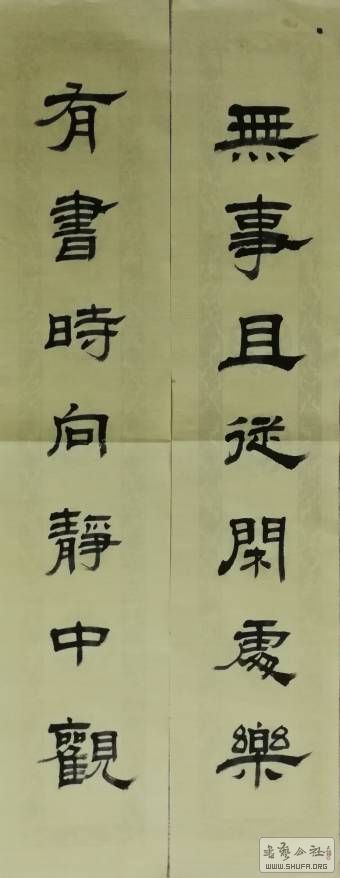 無事且從閑處樂
有書時向靜中觀
书艺公社
WWW.SHUFA.ORG